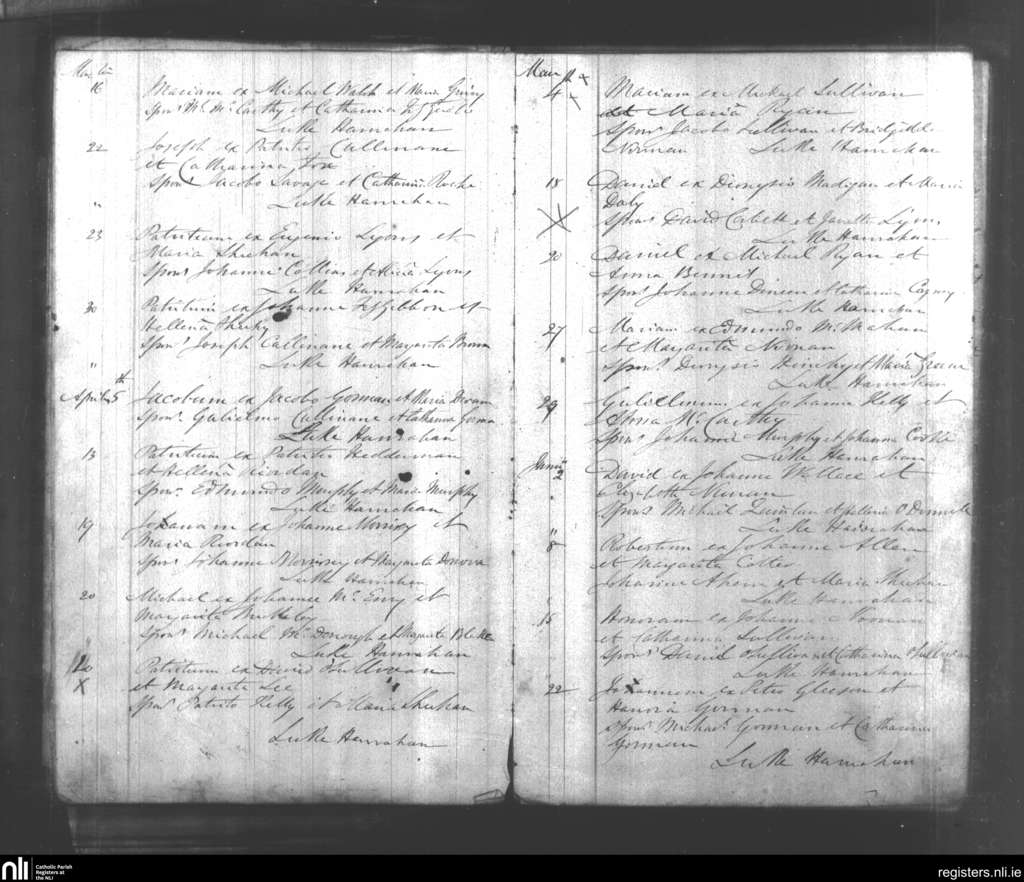 16 Mariam ex Michael Walsh et Maria
Spons Mc Carthy et Catharina
Luke Hanrahan
22 Joseph ex Patritio Cullinane
et Catharina Fox
Spons Jacobo Savage et Catharin Roche
Luke Hanrahan
23 Patritium ex Eugenio Lyons et
Maria Sheehan
Spons Johanne Collins et Alicia Lyons
Luke Hanrahan
30 Patritium ex Johanne FzGibbon et
Hellena
Spons Joseph Cullinane et Margarita
Luke Hanrahan
April 5th Jacobum ex Jacobo Gorman et Maria
Spons Gulielmo Cullinane et Catharina Gorman
Luke Hanrahan
13 Patritium ex Patritio Hedderman
et Hellena Riordan
Spons Edmundo Murphy et Maria Murphy
Luke Hanrahan
19 Johanam ex Johanne Morrissy et
Maria Riordan
Spons Johanne Morrissey et Margarita
Luke Hanrahan
20 Michael ex Johannee Mc et
Margarita
Spons Michael McDonough et Margarita Blake
Luke Hanrahan
20 Patritium ex David Sullivan
X et Margarita Lee
Spons Patritio Kelly et Maria Sheehan
Luke Hanrahan
4 x Mariam ex Michael Sullivan
et Maria Ryan
Spons Jacobo Sullivan et Bridgide
Noonan Luke Hanrahan
18 Daniel ex Dionysio Madigan et Maria
Daly
X Spons David Corbett et Lyons
Luke Hanrahan
20 Daniel ex Michael Ryan et
Anna Bennet
Spons Johanne Dineen et Catharina
Luke Hanrahan
27 Mariam ex Edmundo McMahon
et Margarita Noonan
Spons Dionysio et Maria
Luke Hanrahan
29 Gulielmum ex Johanne Kelly et
Anna McCarthy
Spons Johanne Murphy et Johanna
Luke Hanrahan
2 David ex Johanne Wallace et
Elizabeth
Spons Michael Quinlan et Hellena O Donnell
Luke Hanrahan
8 Robertum ex Johanne Allen
et Margarita Cotter
Johanne Ahern et Maria Sheehan
Luke Hanrahan
15 Honoram ex Johanne Noonan
et Catharina Sullivan
Spons Daniel Sullivan et Catharina Sullivan
Luke Hanrahan
22 Johannem ex Petro Gleeson et
Hanora Gorman
Spons Michael Gorman et Catharina
Gorman
Luke Hanrahan
nli Catholic Parish
Registers at
the NLI
registers.nli.ie